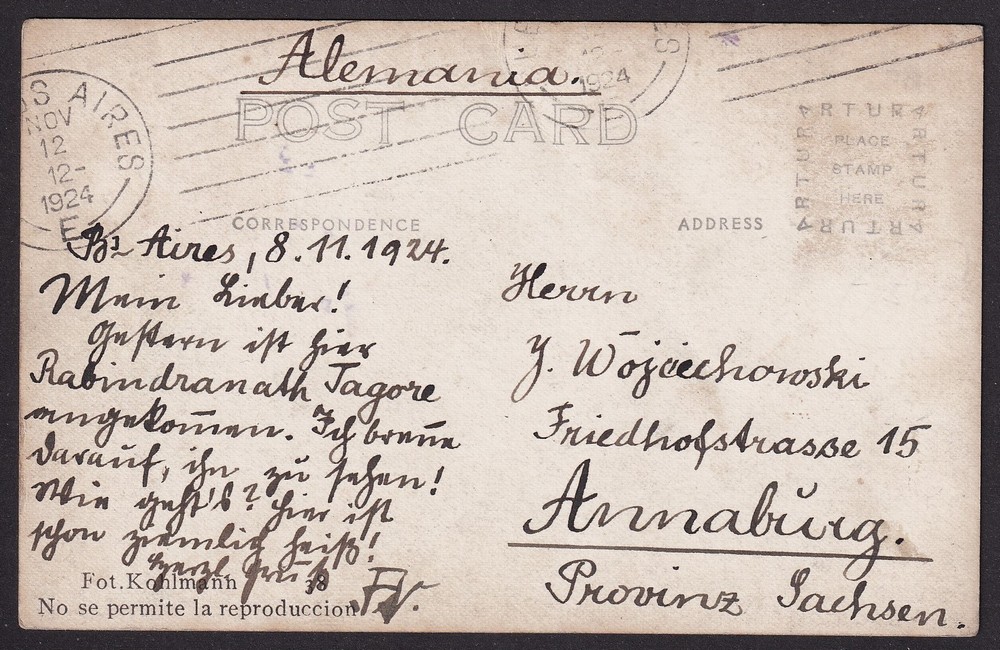 Alemania.
POST CARD
OS AIRES
NOV
12
12-
1924
E
1924
ARTURA
ARTURA
PLACE
STAMP
HERE
ARTURA
ARTURA
CORRESPONDENCE
ADDRESS
Bs Aires, 8.11.1924.
Mein Lieber!
Gestern ist hier
Rabindranath Tagore
angekom̅en. Ich bren̅e
darauf, ihn zu sehen!
Wie geht's? Hier ist
schon ziemlich heiß!
Herzl Gruß
Herrn
J. Wojciechowski
Friedhofstrasse 15
Annaburg.
Provinz Sachsen.
Fot. Kohlmann 38
No se permite la reproduccion